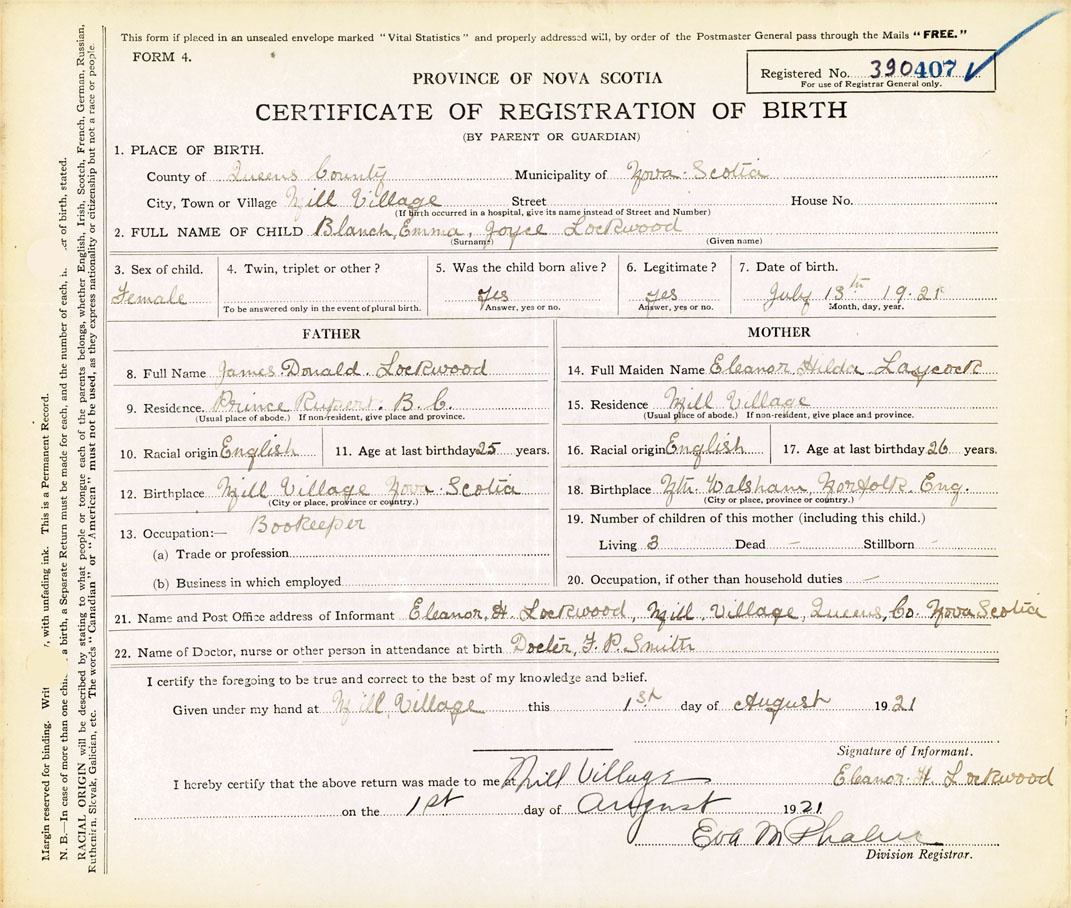 This form if placed in an unsealed envelope marked "Vital Statistics" and properly addressed will, by order of the Postmaster General pass through the Mails "FREE."
FORM 4.
Registered No. 390407
For use of Registrar General only.
PROVINCE OF NOVA SCOTIA
CERTIFICATE OF REGISTRATION OF BIRTH
(BY PARENT OR GUARDIAN)
1. PLACE OF BIRTH.
County of Queens County Municipality of Nova Scotia
City, Town or Village Mill Village Street House No.
(If birth occurred in a hospital, give its name instead of Street and Number)
2. FULL NAME OF CHILD Blanch, Emma, Joyce Lockwood
(Surname) (Given name)
3. Sex of child. 4. Twin, triplet or other? 5. Was the child born alive? 6. Legitimate? 7. Date of birth.
Female Yes Yes July 13th 1921
To be answered only in the event of plural birth. Answer, yes or no. Answer, yes or no. Month, day, year.
FATHER
8. Full Name James Donald Lockwood
9. Residence. Prince Rupert. B. C.
(Usual place of abode.) If non-resident, give place and province.
10. Racial origin English 11. Age at last birthday 25 years.
12. Birthplace Mill Village Nova Scotia
(City or place, province or country.)
13. Occupation:— Bookeeper
(a) Trade or profession
(b) Business in which employed
MOTHER
14. Full Maiden Name Eleanor Hilda Laycock
15. Residence Mill Village
(Usual place of abode.) If non-resident, give place and province.
16. Racial origin English 17. Age at last birthday 26 years.
18. Birthplace Nth. Walsham, Norfolk. Eng.
(City or place, province or country.)
19. Number of children of this mother (including this child.)
Living 3 Dead – Stillborn –
20. Occupation, if other than household duties —
21. Name and Post Office address of Informant Eleanor. H. Lockwood, Mill Village, Queens, Co. Nova Scotia
22. Name of Doctor, nurse or other person in attendance at birth Docter, F. P. Smith
I certify the foregoing to be true and correct to the best of my knowledge and belief.
Given under my hand at Mill Village this 1st day of August 1921
Signature of Informant.
I hereby certify that the above return was made to me at Mill Village Eleanor. H. Lockwood
on the 1st day of August 1921
Eva M Phalen
Division Registrar.
Margin reserved for binding. Writ , with unfading ink. This is a Permanent Record.
N. B.—In case of more than one chil a birth, a Separate Return must be made for each, and the number of each, of birth, stated.
RACIAL ORIGIN will be described by stating to what people or tongue each of the parents belongs, whether English, Irish, Scotch, French, German, Russian,
Ruthenian, Slovak, Galician, etc. The words "Canadian" or "American" must not be used, as they express nationality or citizenship but not a race or people.